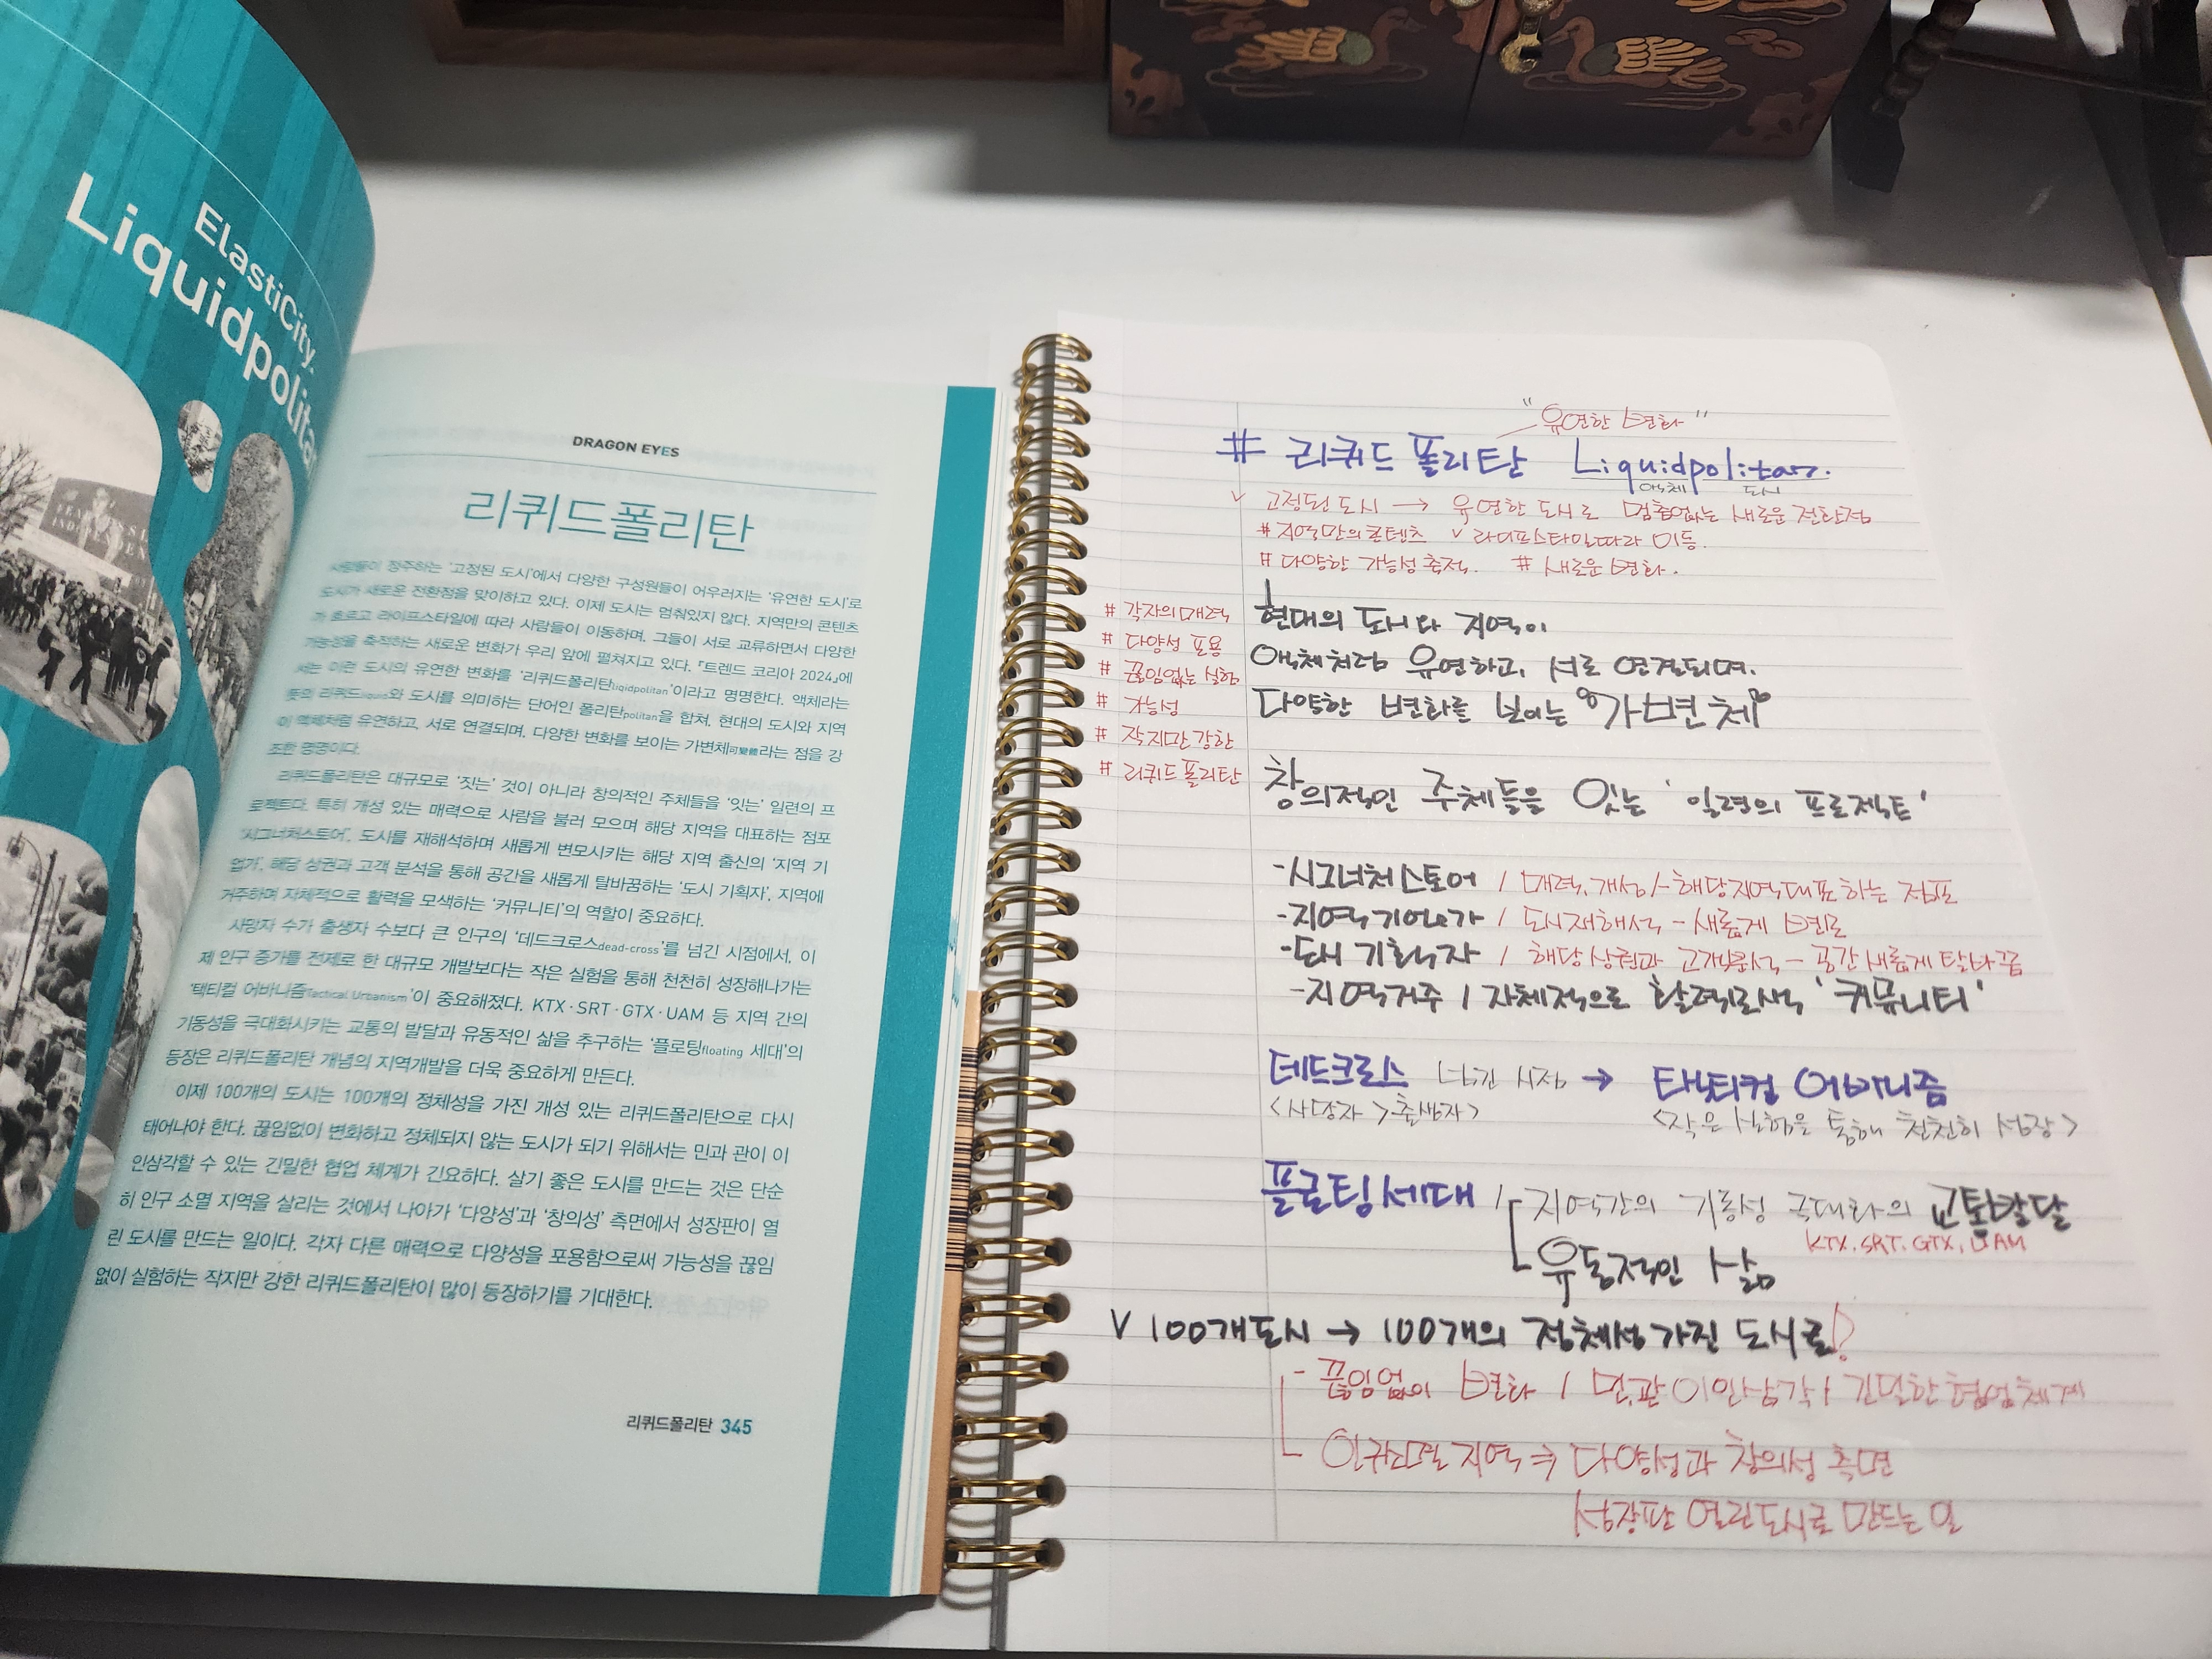 ElastiCity.
Liquidpolitan
DRAGON EYES
리퀴드폴리탄
사람들이 정주하는 '고정된 도시'에서 다양한 구성원들이 어우러지는 '유연한 도시'로
도시가 새로운 전환점을 맞이하고 있다. 이제 도시는 멈춰있지 않다. 지역만의 콘텐츠
가 흐르고 라이프스타일에 따라 사람들이 이동하며, 그들이 서로 교류하면서 다양한
가능성을 축적하는 새로운 변화가 우리 앞에 펼쳐지고 있다. 『트렌드 코리아 2024』에
서는 이런 도시의 유연한 변화를 '리퀴드폴리탄liqidpolitan'이라고 명명한다. 액체라는
뜻의 리퀴드liquid와 도시를 의미하는 단어인 폴리탄politan을 합쳐, 현대의 도시와 지역
이 액체처럼 유연하고, 서로 연결되며, 다양한 변화를 보이는 가변체可變體라는 점을 강
조한 명명이다.
리퀴드폴리탄은 대규모로 '짓는' 것이 아니라 창의적인 주체들을 '잇는' 일련의 프
로젝트다. 특히 개성 있는 매력으로 사람을 불러 모으며 해당 지역을 대표하는 점포
'시그너처스토어', 도시를 재해석하며 새롭게 변모시키는 해당 지역 출신의 '지역 기
업가', 해당 상권과 고객 분석을 통해 공간을 새롭게 탈바꿈하는 '도시 기획자', 지역에
거주하며 자체적으로 활력을 모색하는 '커뮤니티'의 역할이 중요하다.
사망자 수가 출생자 수보다 큰 인구의 '데드크로스dead-cross'를 넘긴 시점에서, 이
제 인구 증가를 전제로 한 대규모 개발보다는 작은 실험을 통해 천천히 성장해나가는
'택티컬 어바니즘Tactical Urbanism'이 중요해졌다. KTX·SRT·GTX·UAM 등 지역 간의
기동성을 극대화시키는 교통의 발달과 유동적인 삶을 추구하는 '플로팅floating 세대'의
등장은 리퀴드폴리탄 개념의 지역개발을 더욱 중요하게 만든다.
이제 100개의 도시는 100개의 정체성을 가진 개성 있는 리퀴드폴리탄으로 다시
태어나야 한다. 끊임없이 변화하고 정체되지 않는 도시가 되기 위해서는 민과 관이 이
인삼각할 수 있는 긴밀한 협업 체계가 긴요하다. 살기 좋은 도시를 만드는 것은 단순
히 인구 소멸 지역을 살리는 것에서 나아가 '다양성'과 '창의성' 측면에서 성장판이 열
린 도시를 만드는 일이다. 각자 다른 매력으로 다양성을 포용함으로써 가능성을 끊임
없이 실험하는 작지만 강한 리퀴드폴리탄이 많이 등장하기를 기대한다.
리퀴드폴리탄 345
"유연한 변화"
# 리퀴드 폴리탄 Liquidpolitan.
액체 도시
v 고정된 도시 → 유연한 도시로 멈춤없는 새로운 전환점
# 지역만의 콘텐츠 v 라이프스타일따라 이동.
# 다양한 가능성 축적. # 새로운 변화.
# 각자의 매력
# 다양성 포용
# 끊임없는 실험
# 가능성
# 작지만 강한
# 리퀴드 폴리탄
현대의 도시와 지역이
액체처럼 유연하고, 서로 연결되며.
다양한 변화를 보이는 "가변체"
창의적인 주체들을 잇는 '일련의 프로젝트'
-시그너처스토어 / 매력, 개성/-해당지역대표하는 점포
-지역기업가 / 도시재해석 - 새롭게 변모
-도시 기획자 / 해당상권과 고객분석 - 공간 새롭게 탈바꿈
-지역거주 / 자체적으로 활력모색 '커뮤니티'
데드크로스 넘긴 시점 → 택티컬 어바니즘
<사망자 > 출생자> <작은 실험을 통해 천천히 성장>
플로팅세대 / 지역간의 기동성 극대화의 교통발달
KTX. SRT. GTX, UAM
유동적인 삶
V 100개도시 → 100개의 정체성 가진 도시로!
- 끊임없이 변화 / 민,관 이인삼각 / 긴밀한 협업체계
인구소멸 지역 ⇒ 다양성과 창의성 측면
성장판 열린도시로 만드는 일